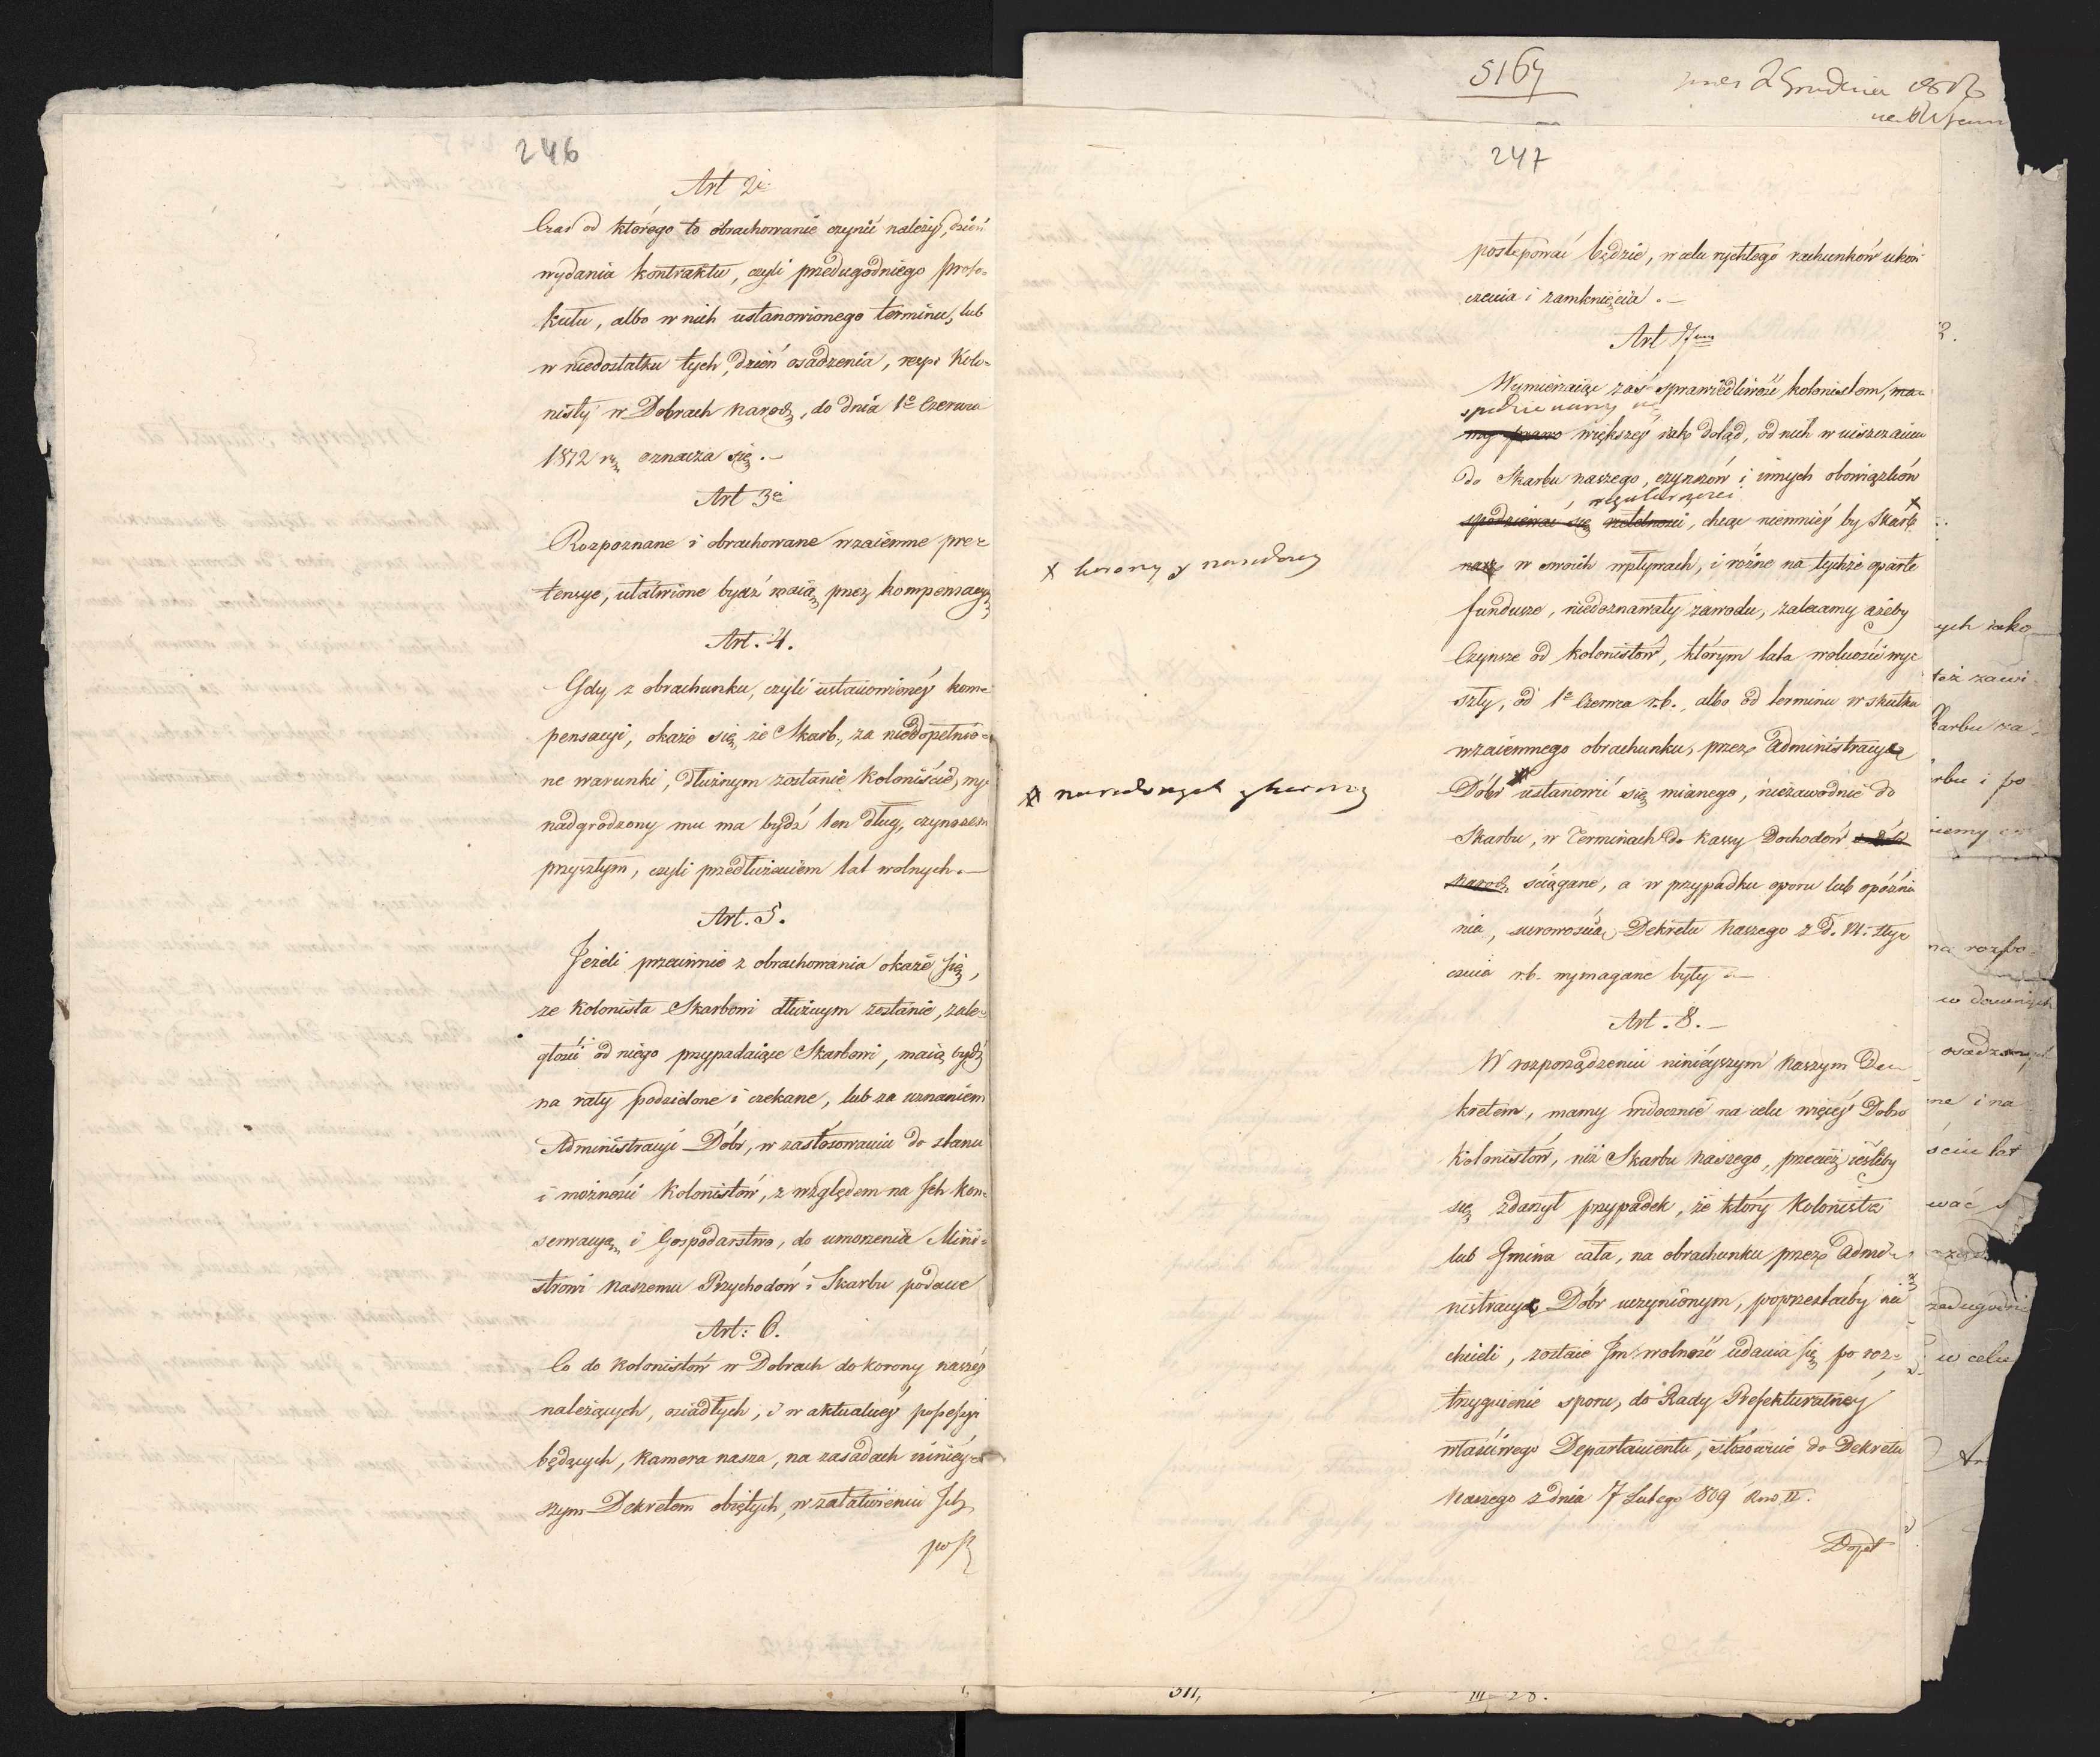 246
Art 2i
Czas od którego to obrachowanie czynić należy, dzień
wydania kontraktu, czyli przedugodniego proto-
kułu, albo w nich ustanowionego terminu, lub
w niedostatku tych, dzień osadzenia, resp: Kolo-
nisty w Dobrach narod, do dnia 1o Czerwca
1812 r. oznacza się.-
Art 3i
Rozpoznane i obrachowane wzaiemne pre-
tensye, ułatwione bydź maią przez kompensacyą
Art. 4.
Gdy z obrachunku, czyli ustanowionéy kom-
pensacyi, okaże się, że Skarb, za niedopełnio-
ne warunki, dłużnym zostanie koloniście, wy-
nadgrodzony mu ma bydź ten dług, czynszem
przyszłym, czyli przedłużeniem lat wolnych.-
Art. 5.
Jeżeli przeciwnie z obrachowania okaże się,
że kolonista Skarbowi dłużnym zostanie, zale-
głości od niego przypadaiące Skarbowi, maią bydź
na raty podzielone i czekane, lub za uznaniem
Administracyi Dóbr, w zastósowaniu do stanu
i możności kolonistów, z względem na Ich kon-
serwacyą i Gospodarstwo, do umorzenia Mini-
strowi Naszemu Przychodów i Skarbu podane
Art: 6.
Co do kolonistów w Dobrach do korony naszéy
należących, osiadłych, i w aktualnéy possessyi
będących, kamera nasza, na zasadach niniéy-
szym Dekretem obiętych, w załatwieniu Ich
post
5167
2 Grudnia
247
postępować będzie, w celu rychłego rachunków ukoń
czenia i zamknięcia.-
Art 7um
Wymierzaiąc zaś sprawiedliwość kolonistom, ma-
spodziewamy się
my prawo większéy iak dotąd, od nich w uiszczaniu
do Skarbu naszego, czynszów i innych obowiązków
regularności
spodziewać się rzetelności, chcąc niemniéy by Skarb x
nasz w swoich wpływach, i różne na tychże oparte
x korony y narodowy
fundusze, niedoznawały zawodu, zalecamy ażeby
Czynsze od kolonistów, którym lata wolności wy-
szły, od 1o Czerwca r.b., albo od terminu w skutku
wzaiemnego obrachunku, przez Administracyą
Dóbr ustanowić się mianego, niezawodnie do
narodowych y korony
Skarbu, w Terminach do kassy Dochodów z Dóbr
narod, ściągane, a w przypadku oporu lub opóźnie
nia, surowością Dekretu Naszego z D. 14. Sty-
cznia r.b. wymagane były.-
Art. 8.-
W rozporządzeniu niniéyszym Naszym De-
kretem, mamy widocznie na celu więcéy Dobro
kolonistów, niż Skarbu Naszego, przecież ieśliby
się zdarzył przypadek, że który kolonista
lub Gmina cała, na obrachunku przez Admi-
nistracyą Dóbr uczynionym, poprzestaćby nie
chcieli, zostaie Im wolność udania się po roz-
trzygnienie sporu, do Rady Prefekturalnéy
właściwego Departamentu, stósownie do Dekretu
Naszego z dnia 7 Lutego 809 Row IV.
ych iako
też zawi
Skarbu
rbu i po
w dawnych
ne i na
ściu lat
wać
w celu
311,
III 28.